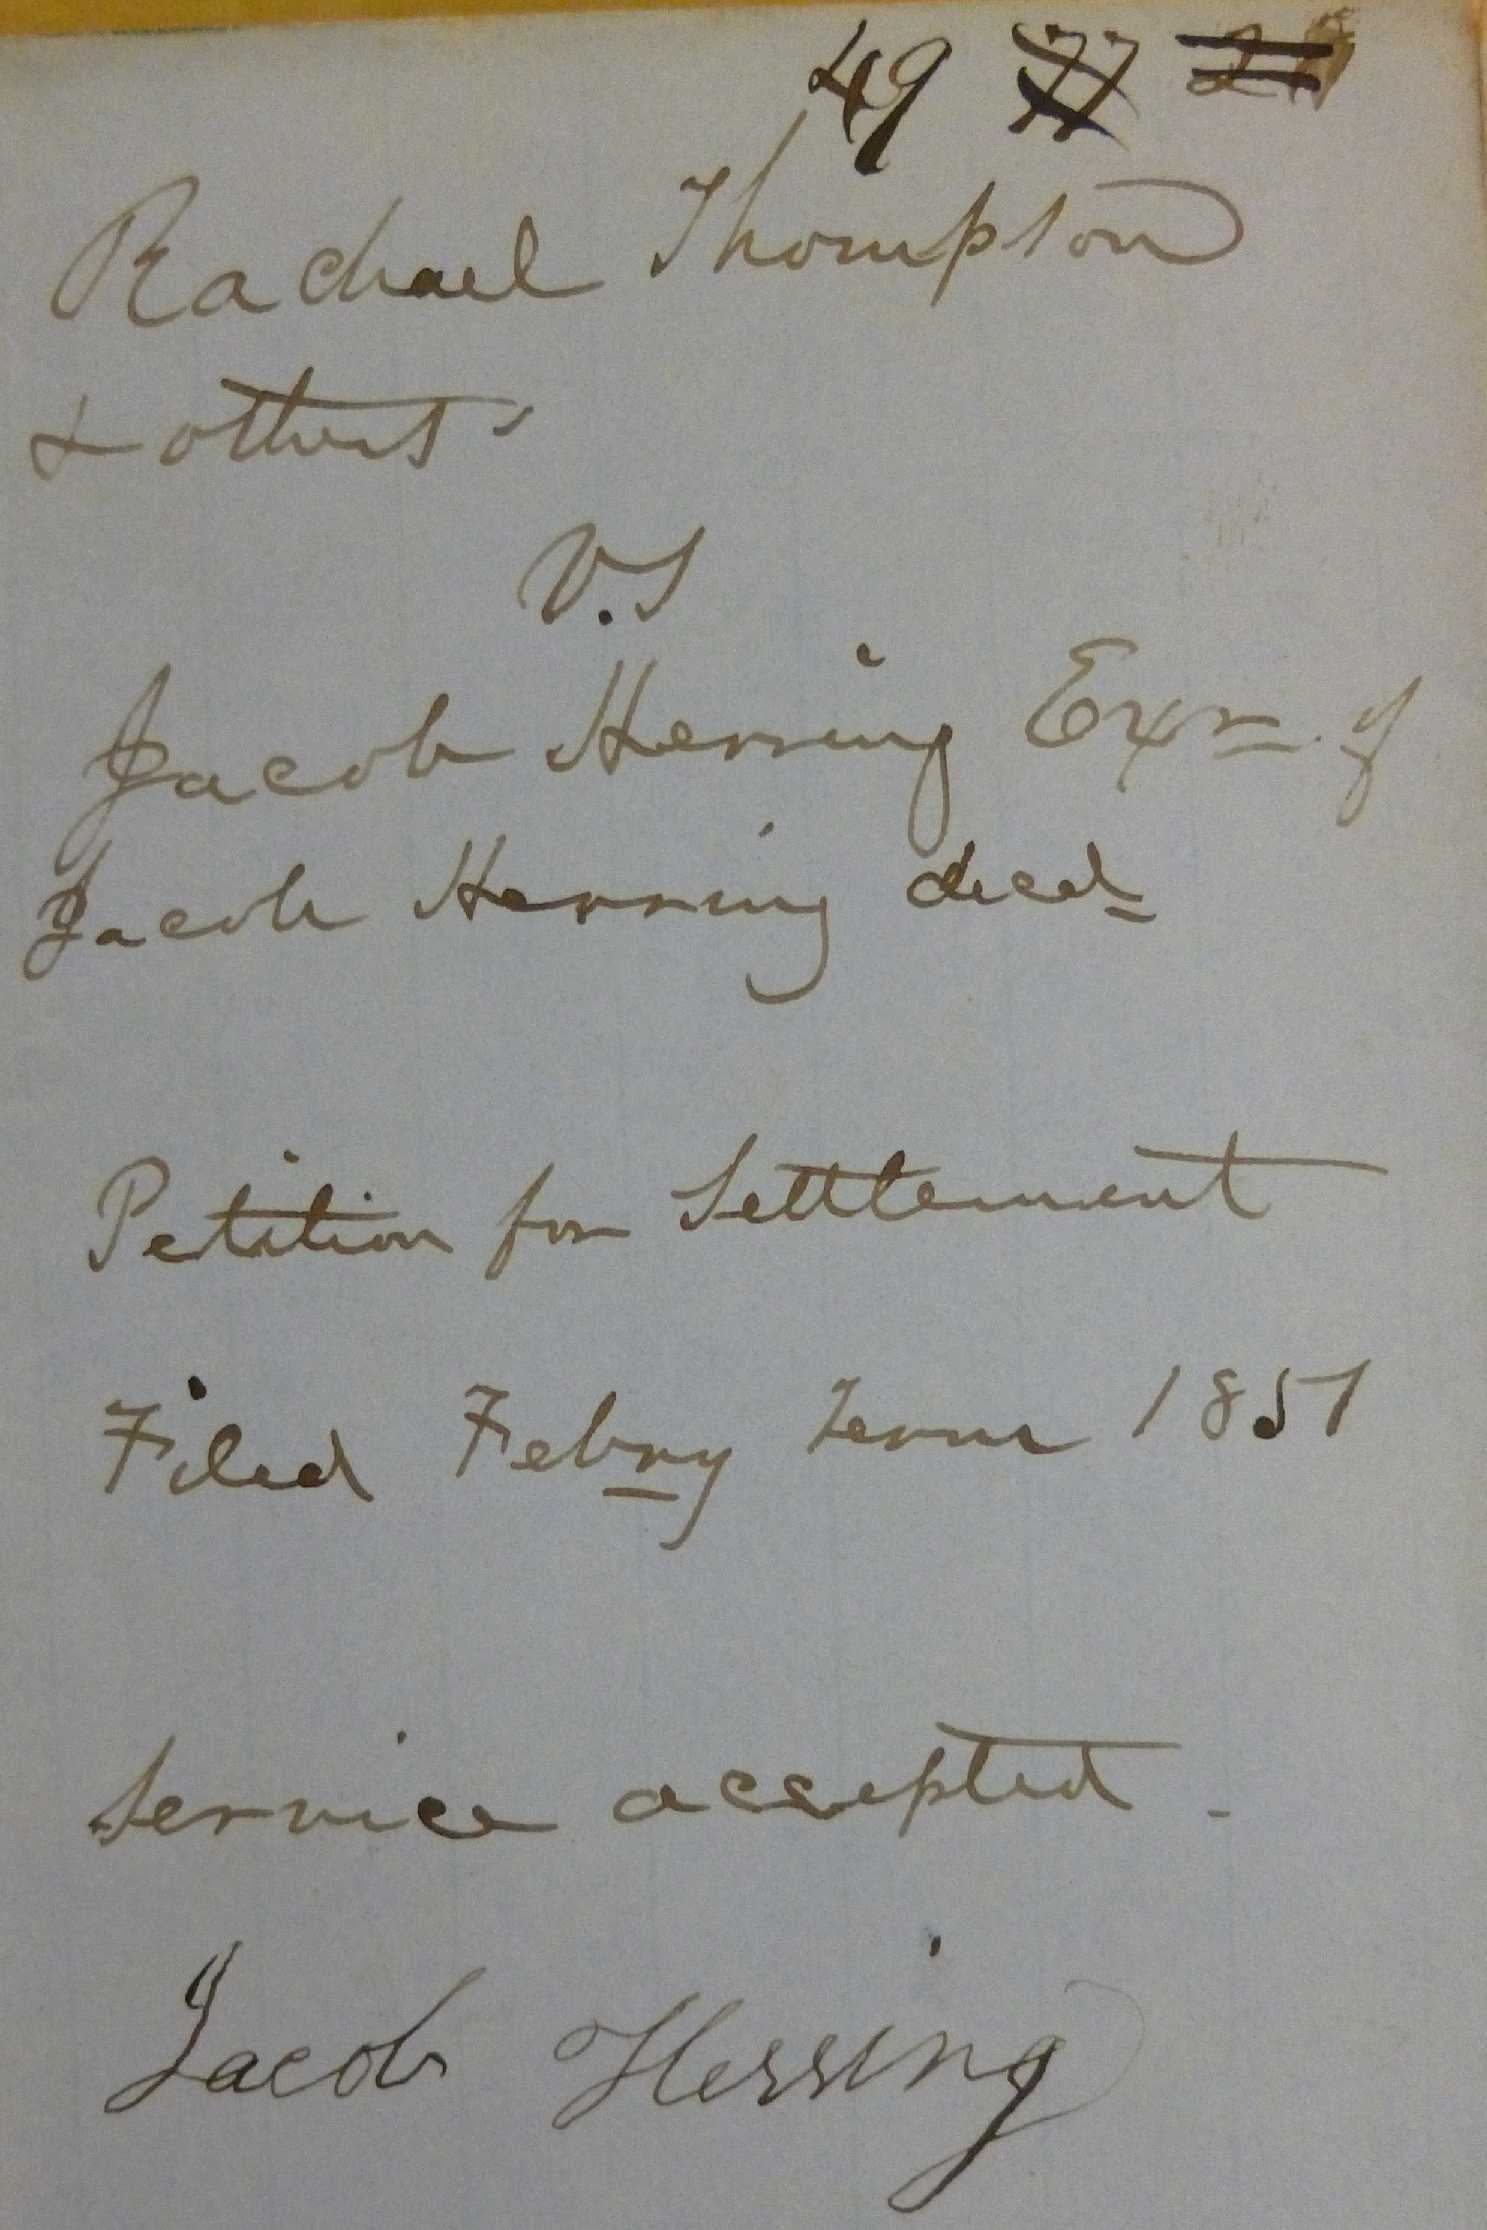 49 77
Rachael Thompson
& others
V.S
Jacob Herring Exr. of
Jacob Herring decd
Petition for Settlement
Filed Febry Term 1857
Service accepted.
Jacob Herring